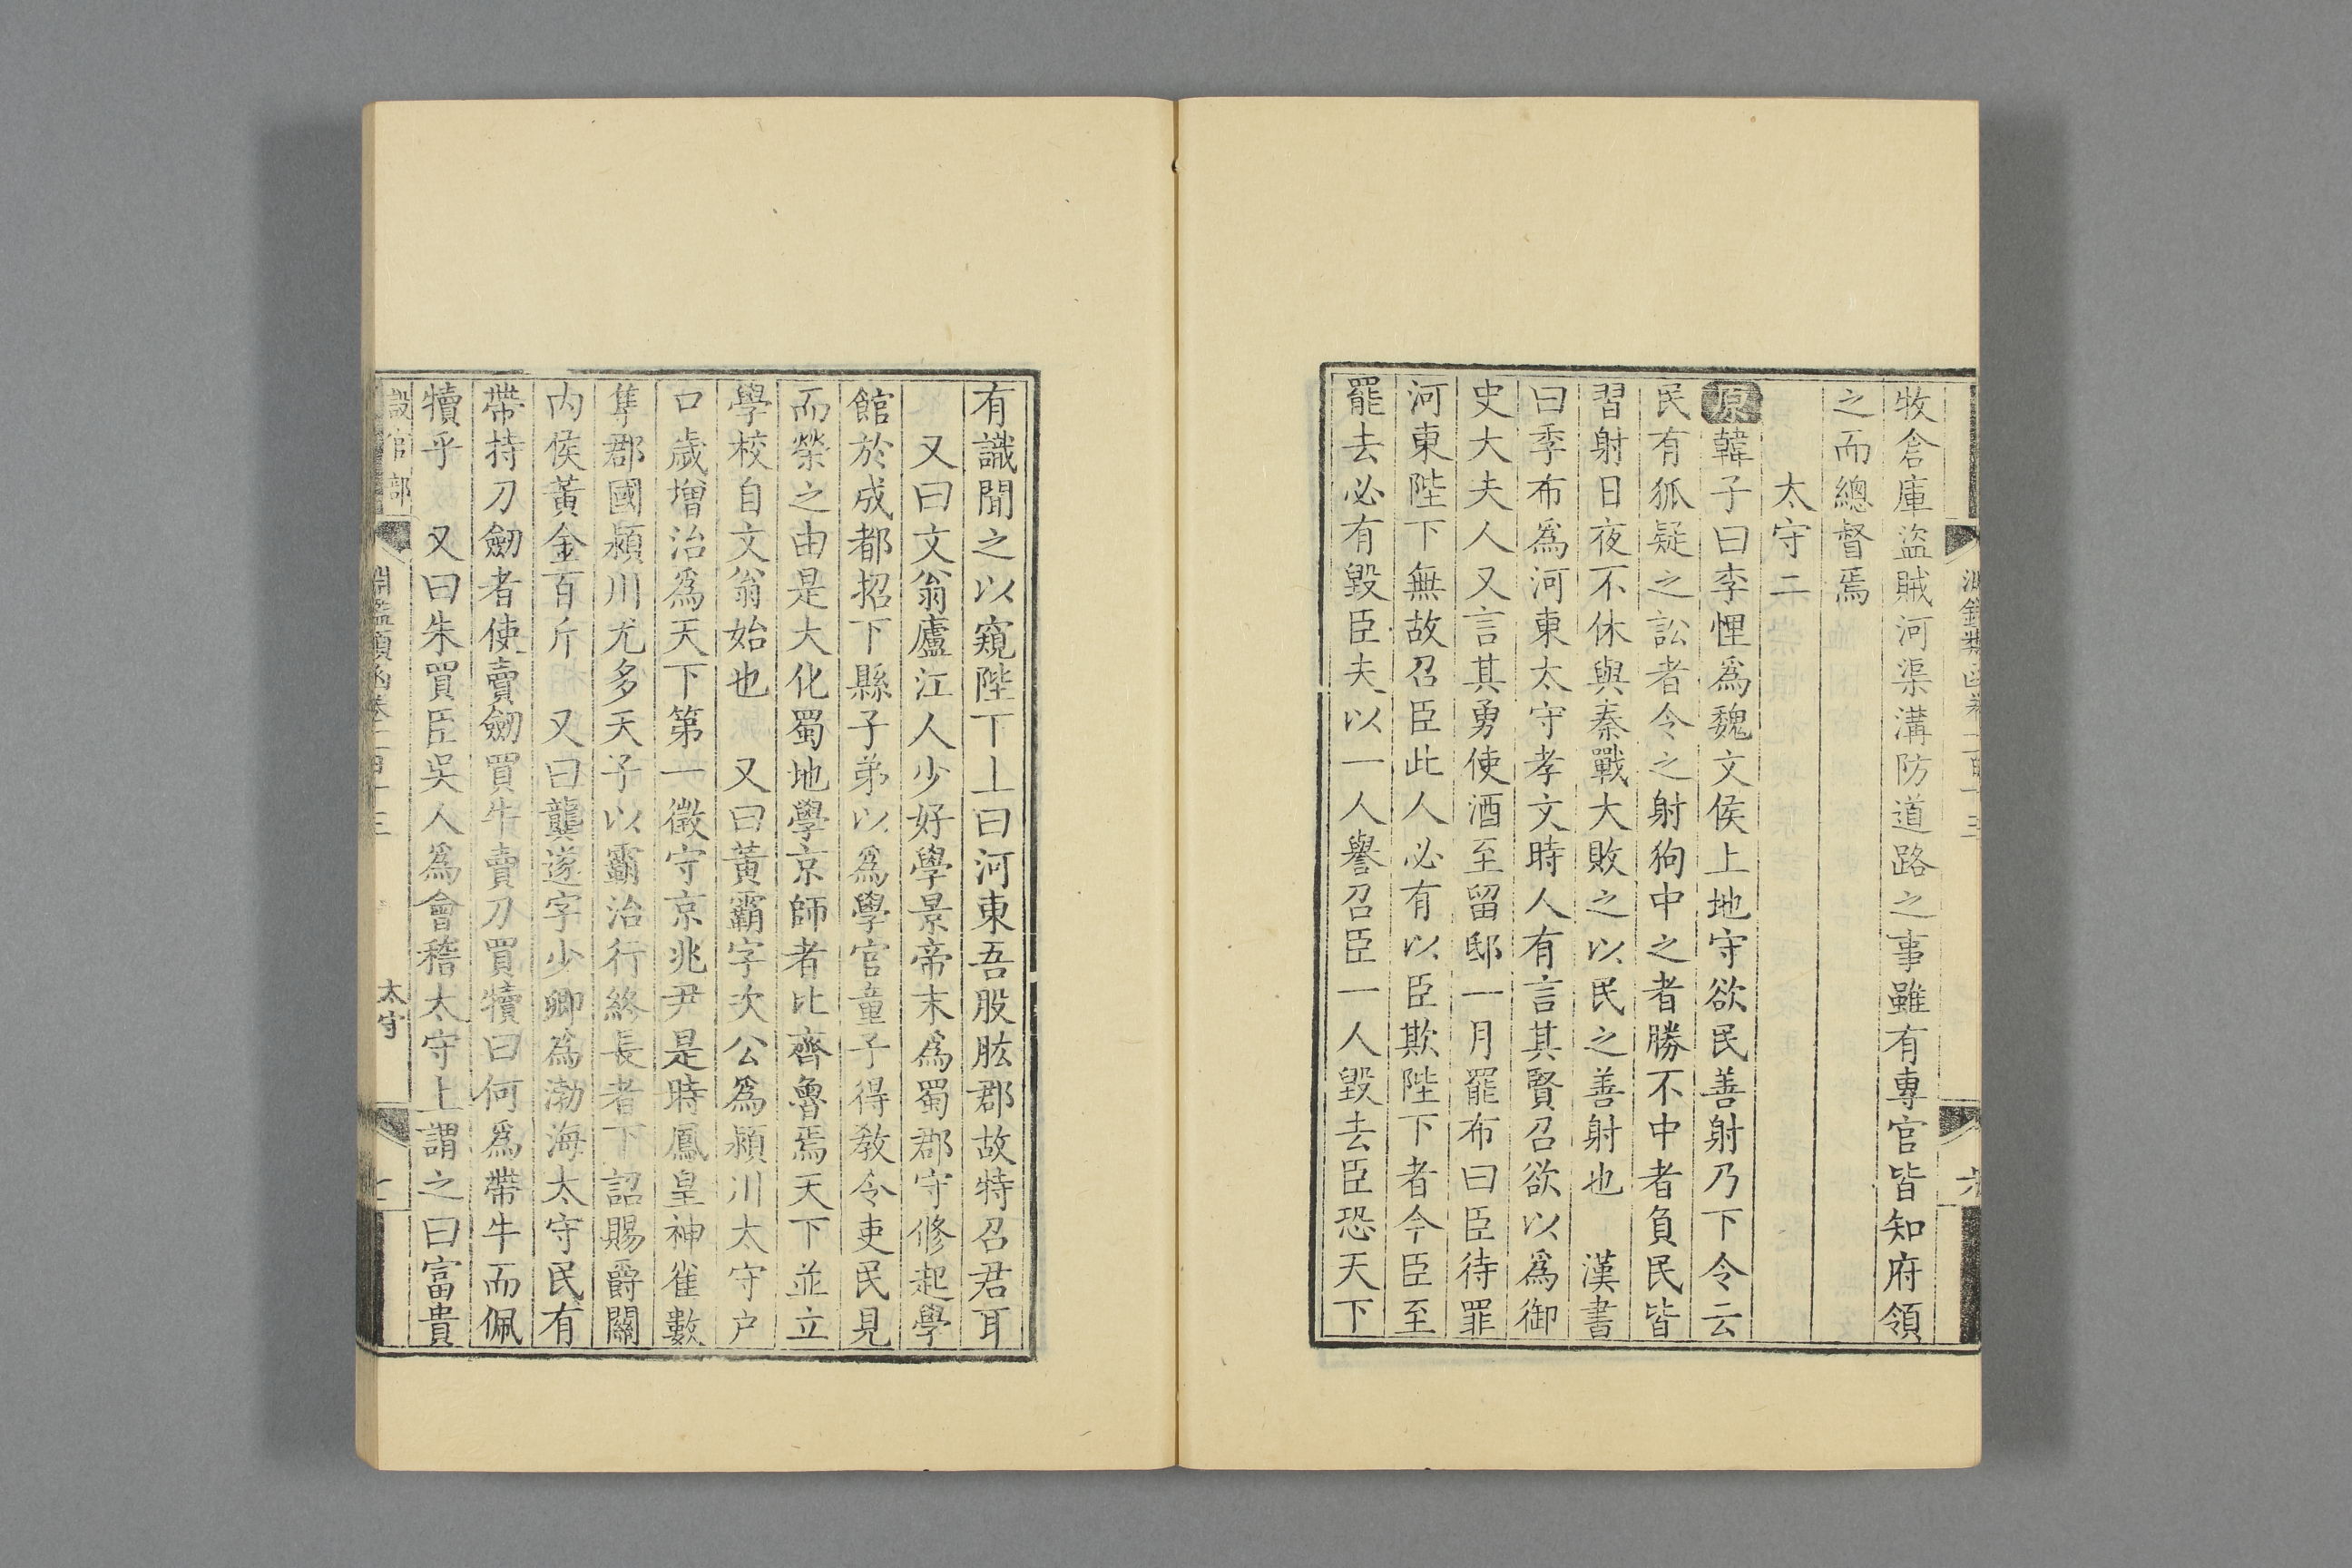 牧倉庫盜賊河渠溝防道路之事雖有專官皆知府領
之而總督焉
太守二
原韓子曰李悝爲魏文侯上地守欲民善射乃下令云
民有狐疑之訟者令之射狗中之者勝不中者負民皆
習射日夜不休與秦戰大敗之以民之善射也 漢書
曰季布爲河東太守孝文時人有言其賢召欲以爲御
史大夫人又言其勇使酒至留邸一月罷布曰臣待罪
河東陛下無故召臣此人必有以臣欺陛下者今臣至
罷去必有毀臣夫以一人譽召臣一人毀去臣恐天下
有識聞之以窺陛下上曰河東吾股肱郡故特召君耳
又曰文翁廬江人少好學景帝末爲蜀郡守修起學
館於成都招下縣子弟以爲學官童子得教令吏民見
而榮之由是大化蜀地學京師者比齊魯焉天下並立
學校自文翁始也 又曰黃霸字次公爲潁川太守户
口歲增治爲天下第一徵守京兆尹是時鳳皇神雀數
集郡國潁川尤多天子以霸治行終長者下詔賜爵關
内侯黃金百斤 又曰龔遂字少卿爲渤海太守民有
帶持刀劒者使賣劒買牛賣刀買犢曰何爲帶牛而佩
犢乎 又曰朱買臣吳人爲會稽太守上謂之曰富貴
太守